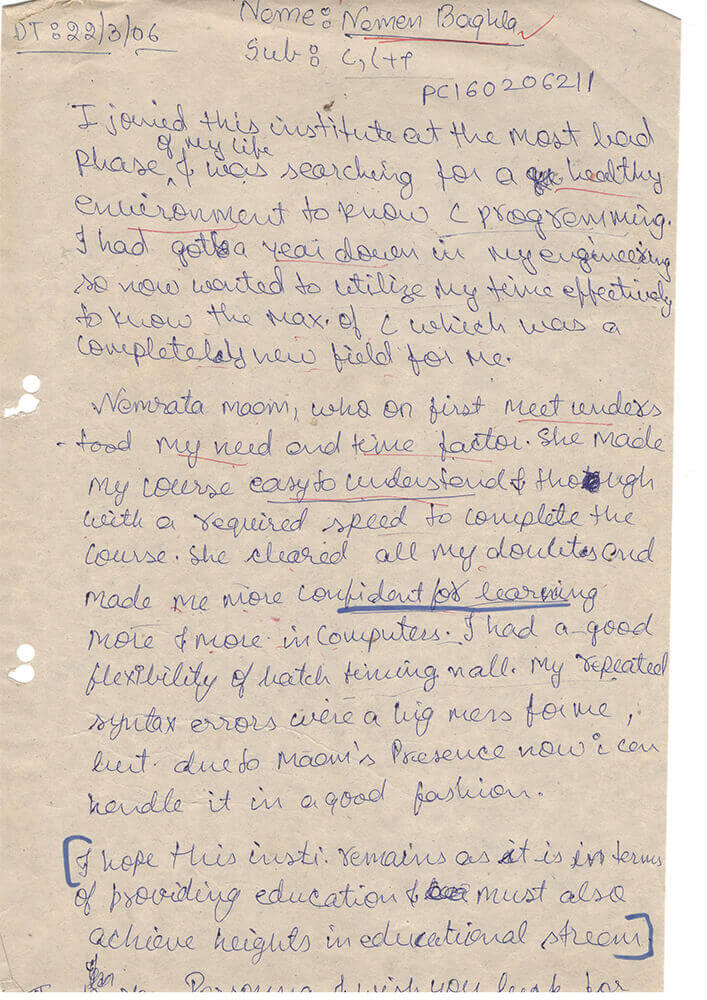 Name: Namen Baghla
DT: 22/3/06
Sub: C, C++
PC160206211
I joined this institute at the most bad
of my life
phase & was searching for a healthy
environment to know C programming.
I had got a year down in my engineering
so now wanted to utilize my time effectively
to know the max. of C which was a
completely new field for me.
Namrata maam, who on first meet unders
-tood my need and time factor. She made
my course easy to understand & though
with a required speed to complete the
course. She cleared all my doubts and
made me more confident for learning
more & more in computers. I had a good
flexibility of batch timing nall. My repeated
syntax errors were a big mess for me,
but due to Maam's Presence now i can
handle it in a good fashion.
[I hope this insti. remains as it is in terms
of providing education & must also
achieve heights in educational stream]
I wish you luck for